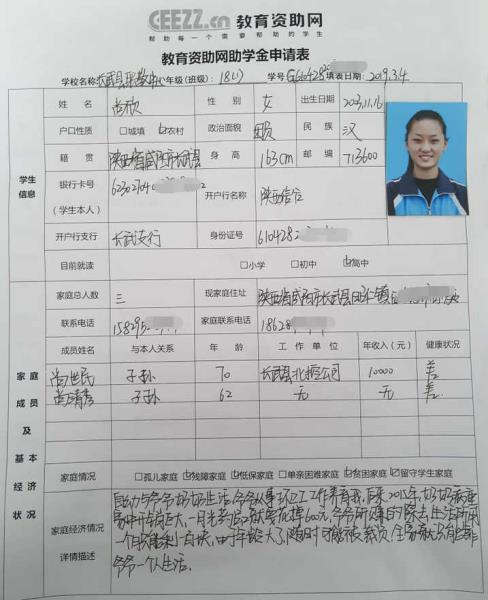 CEEZZ.cn 教育资助网
帮助每一个需要帮助的学生
教育资助网助学金申请表
学校名称 长武县职教中心 年级(班级): 18(1) 学号 G610428 填表日期: 2019.3.4
姓名 尚欣 性别 女 出生日期
户口性质 □城填 ☑农村 政治面貌 团员 民族 汉
籍贯 陕西省咸阳市长武县 身高 163cm 邮编 713600
学生信息
银行卡号 (学生本人) 623027040 2 开户行名称 陕西信合
开户行支行 长武支行 身份证号 610428
目前就读 □小学 □初中 ☑高中
家庭总人数 三 现家庭住址 陕西省咸阳市长武县
联系电话 158295 家庭联系电话 18628
成员姓名 与本人关系 年龄 工作单位 年收入(元) 健康状况
尚世民 子孙 70 长武县 公司 10000 差
尚 子孙 62 无 无 差
家庭成员及基本经济状况
家庭情况 □孤儿家庭 ☑残障家庭 ☑低保家庭 □单亲困难家庭 ☑贫困家庭 ☑留守学生家庭
家庭经济情况详情描述
自幼与爷爷奶奶生活,爷爷从事环卫工作养育我,后来2015年,奶奶
一月光药 就要花掉600元,爷爷所 的除去生活所用
一个月 ,由于年龄大了,随时可能被裁员,全家
爷爷一个人生活。